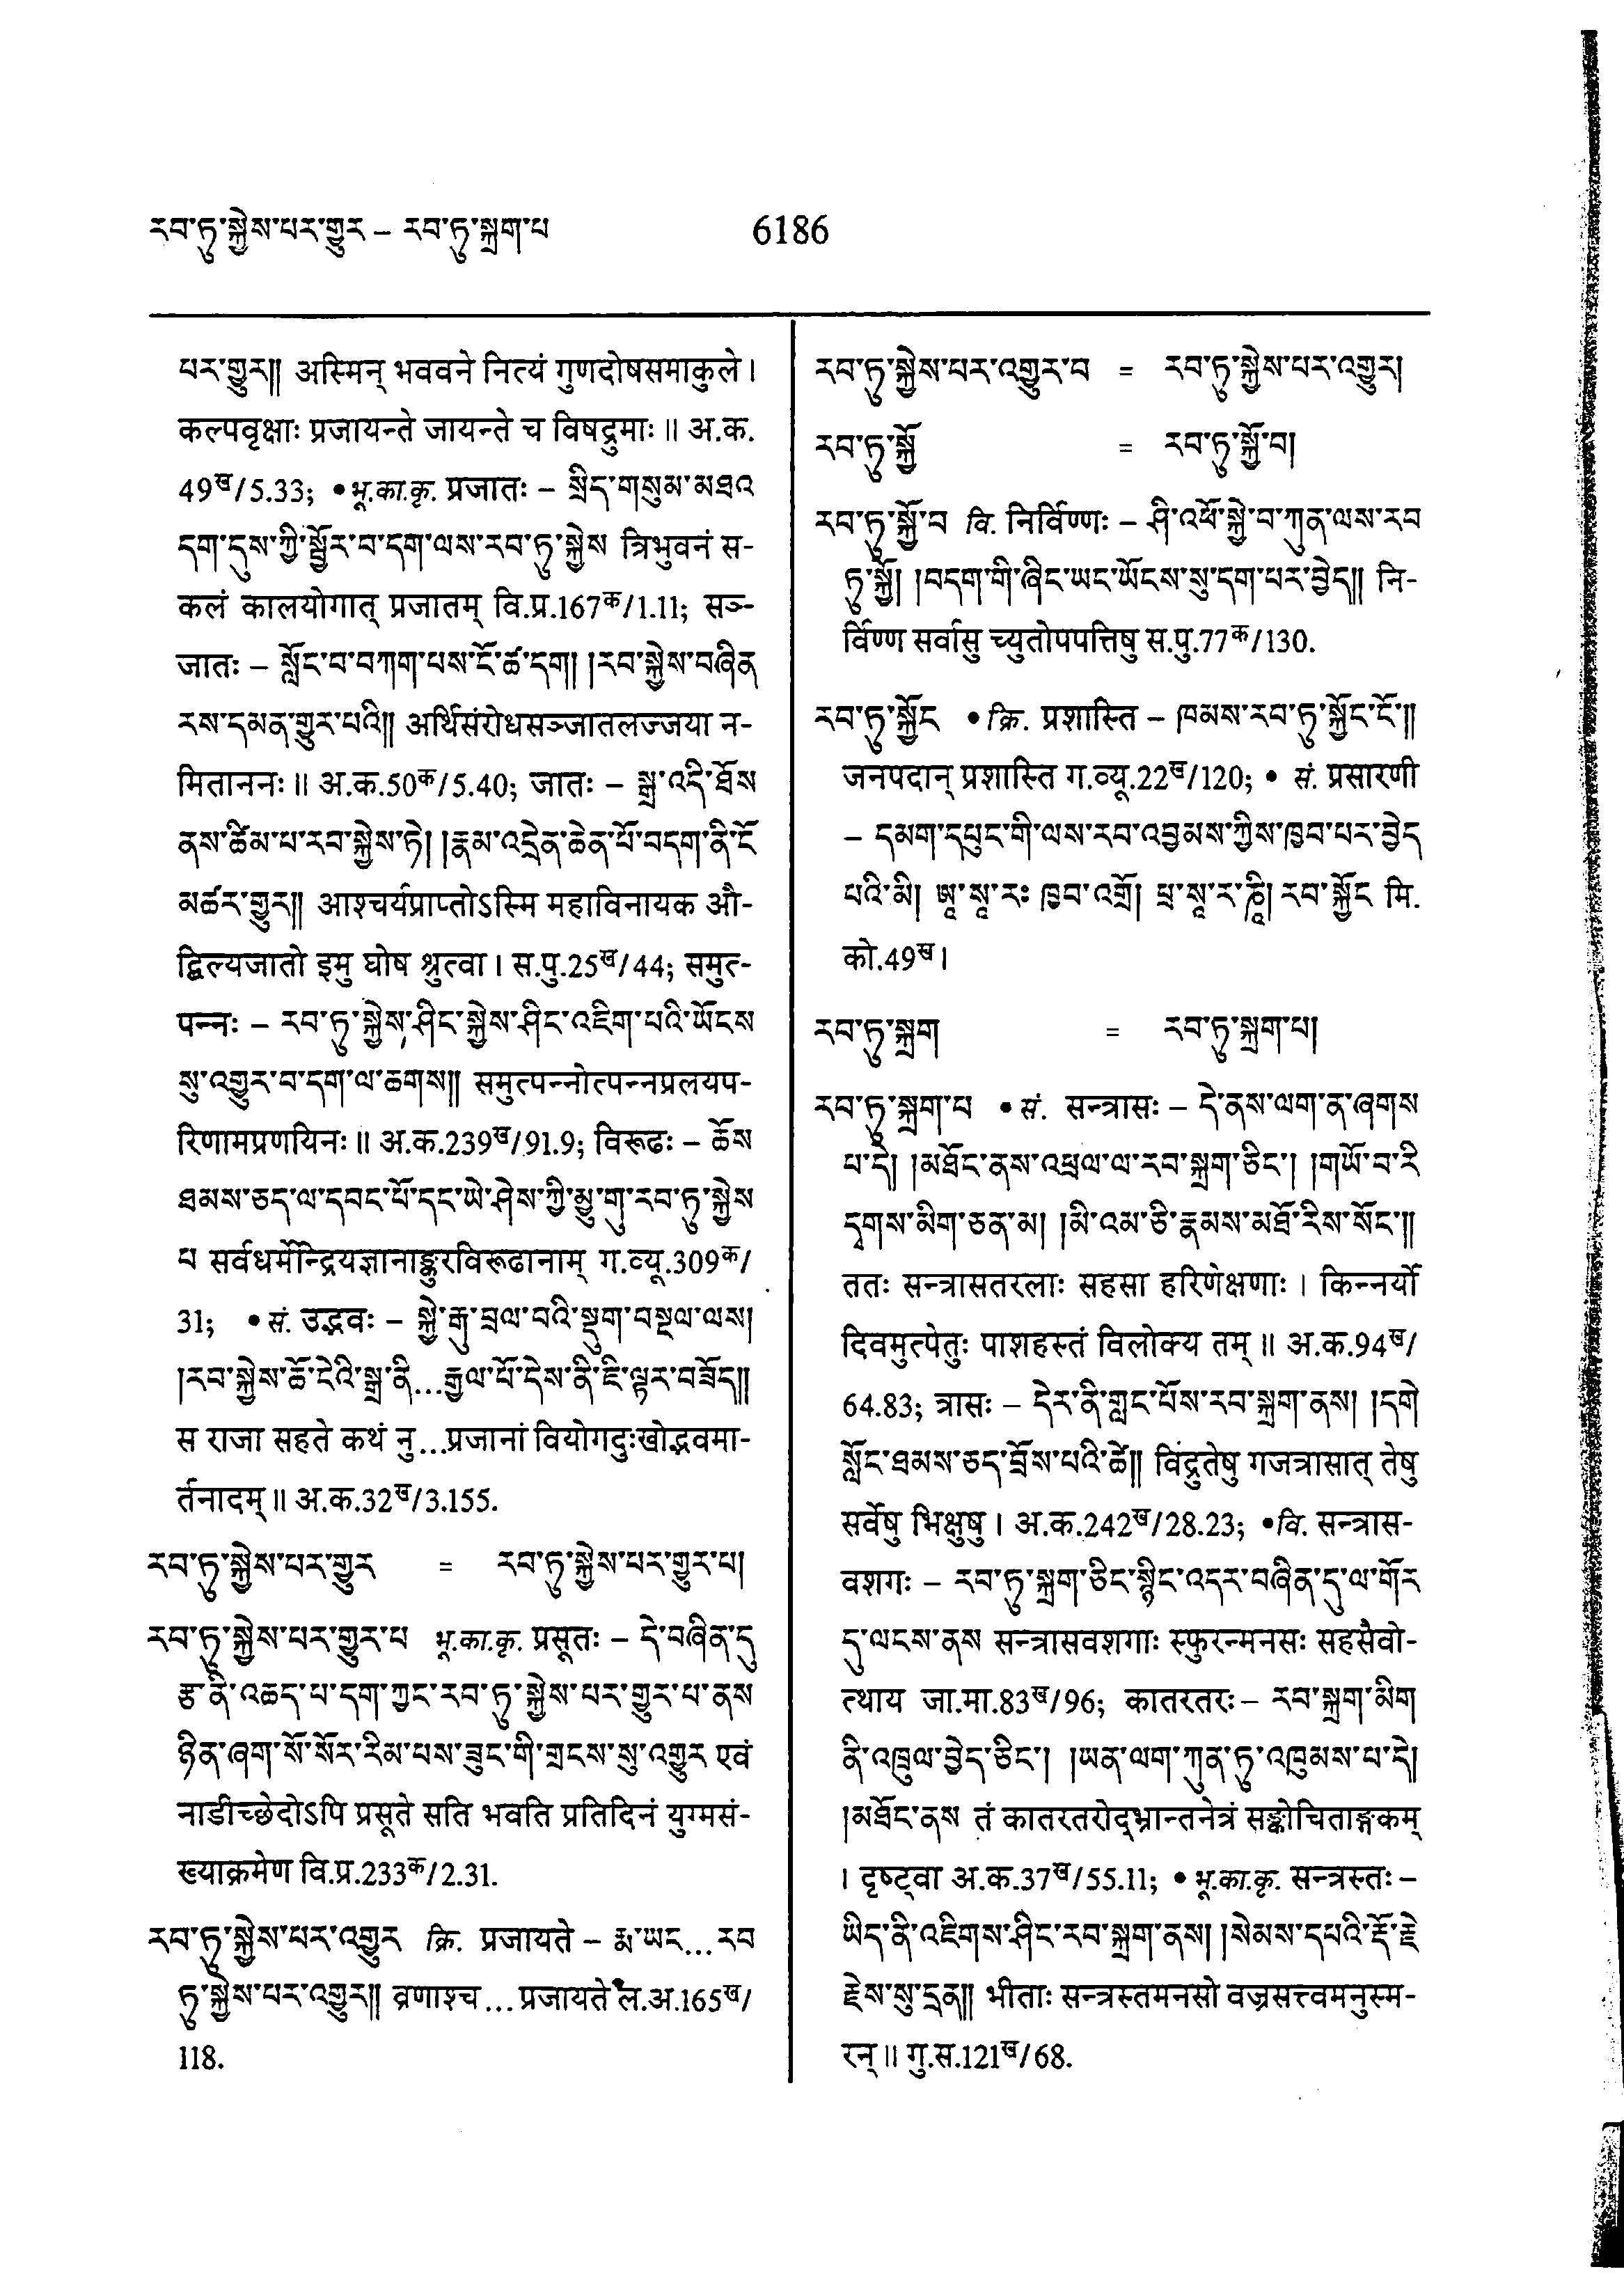 རབ་ཏུ་སྐྱེས་པར་གྱུར – རབ་ཏུ་སྐྲག་པ
6186
པར་གྱུར།། अस्मिन् भववने नित्यं गुणदोषसमाकुले।
कल्पवृक्षाः प्रजायन्ते जायन्ते च विषद्रुमाः॥ अ.क.
49ख/5.33; •भू.का.कृ. प्रजातः – སྲིད་གསུམ་མཐའ
དག་དུས་ཀྱི་སྦྱོར་བ་དག་ལས་རབ་ཏུ་སྐྱེས त्रिभुवनं स-
कलं कालयोगात् प्रजातम् वि.प्र.167क/1.11; सञ्-
जातः – སློང་བ་བཀག་པས་ངོ་ཚ་དག། །རབ་སྐྱེས་བཞིན
རས་དམན་གྱུར་པའི།། अर्थिसंरोधसञ्जातलज्जया न-
मिताननः॥ अ.क.50क/5.40; जातः – སྒྲ་འདི་ཐོས
ནས་ཚིམ་པ་རབ་སྐྱེས་ཏེ། །རྣམ་འདྲེན་ཆེན་པོ་བདག་ནི་ངོ
མཚར་གྱུར།། आश्चर्यप्राप्तोऽस्मि महाविनायक औ-
द्बिल्यजातो इमु घोष श्रुत्वा। स.पु.25ख/44; समुत्-
पन्नः – རབ་ཏུ་སྐྱེས་ཤིང་སྐྱེས་ཤིང་འཇིག་པའི་ཡོངས
སུ་འགྱུར་བ་དག་ལ་ཆགས།། समुत्पन्नोत्पन्नप्रलयप-
रिणामप्रणयिनः॥ अ.क.239ख/91.9; विरूढः – ཆོས
ཐམས་ཅད་ལ་དབང་པོ་དང་ཡེ་ཤེས་ཀྱི་མྱུ་གུ་རབ་ཏུ་སྐྱེས
པ सर्वधर्मेन्द्रियज्ञानाङ्कुरविरूढानाम् ग.व्यू.309क/
31; •सं. उद्भवः – སྐྱེ་རྒུ་བྲལ་བའི་སྡུག་བསྔལ་ལས།
།རབ་སྐྱེས་ཆོ་ངེའི་སྒྲ་ནི...རྒྱལ་པོ་དེས་ནི་ཇི་ལྟར་བཟོད།།
स राजा सहते कथं नु...प्रजानां वियोगदुःखोद्भवमा-
र्तनादम्॥ अ.क.32ख/3.155.
རབ་ཏུ་སྐྱེས་པར་གྱུར = རབ་ཏུ་སྐྱེས་པར་གྱུར་པ།
རབ་ཏུ་སྐྱེས་པར་གྱུར་པ भू.का.कृ. प्रसूतः – དེ་བཞིན་དུ
རྩ་ནི་འཆད་པ་དག་ཀྱང་རབ་ཏུ་སྐྱེས་པར་གྱུར་པ་ནས
ཉིན་ཞག་སོ་སོར་རིམ་པས་ཟུང་གི་གྲངས་སུ་འགྱུར एवं
नाडीच्छेदोऽपि प्रसूते सति भवति प्रतिदिनं युग्मसं-
ख्याक्रमेण वि.प्र.233क/2.31.
རབ་ཏུ་སྐྱེས་པར་འགྱུར क्रि. प्रजायते – རྨ་ཡང...རབ
ཏུ་སྐྱེས་པར་འགྱུར།། व्रणाश्च...प्रजायते ल.अ.165ख/
118.
རབ་ཏུ་སྐྱེས་པར་འགྱུར་བ = རབ་ཏུ་སྐྱེས་པར་འགྱུར།
རབ་ཏུ་སྐྱོ = རབ་ཏུ་སྐྱོ་བ།
རབ་ཏུ་སྐྱོ་བ वि. निर्विण्णः – ཤི་འཕོ་སྐྱེ་བ་ཀུན་ལས་རབ
ཏུ་སྐྱོ། །བདག་གི་ཞིང་ཡང་ཡོངས་སུ་དག་པར་བྱེད།། नि-
र्विण्ण सर्वासु च्युतोपपत्तिषु स.पु.77क/130.
རབ་ཏུ་སྐྱོང •क्रि. प्रशास्ति – ཁམས་རབ་ཏུ་སྐྱོང་ངོ་།།
जनपदान् प्रशास्ति ग.व्यू.22ख/120; • सं. प्रसारणी
– དམག་དཔུང་གི་ལས་རབ་འབྱམས་ཀྱིས་ཁྱབ་པར་བྱེད
པའི་མི། ཨཱ་སཱ་རཿ ཁྱབ་འགྲོ། པྲ་སཱ་ར་ཎཱི། རབ་སྐྱོང मि.
को.49ख।
རབ་ཏུ་སྐྲག = རབ་ཏུ་སྐྲག་པ།
རབ་ཏུ་སྐྲག་པ •सं. सन्त्रासः – དེ་ནས་ལག་ན་ཞགས
པ་དེ། །མཐོང་ནས་འཕྲལ་ལ་རབ་སྐྲག་ཅིང་། །གཡོ་བ་རི
དྭགས་མིག་ཅན་མ། །མི་འམ་ཅི་རྣམས་མཐོ་རིས་སོང་།།
ततः सन्त्रासतरलाः सहसा हरिणेक्षणाः। किन्नर्यो
दिवमुत्पेतुः पाशहस्तं विलोक्य तम्॥ अ.क.94ख/
64.83; त्रासः – དེར་ནི་གླང་པོས་རབ་སྐྲག་ནས། །དགེ
སློང་ཐམས་ཅད་བྲོས་པའི་ཚེ།། विद्रुतेषु गजत्रासात् तेषु
सर्वेषु भिक्षुषु। अ.क.242ख/28.23; •वि. सन्त्रास-
वशगः – རབ་ཏུ་སྐྲག་ཅིང་སྙིང་འདར་བཞིན་དུ་ལ་གོར
དུ་ལངས་ནས सन्त्रासवशगाः स्फुरन्मनसः सहसैवो-
त्थाय जा.मा.83ख/96; कातरतरः – རབ་སྐྲག་མིག
ནི་འཁྲུལ་བྱེད་ཅིང་། །ཡན་ལག་ཀུན་ཏུ་འཁུམས་པ་དེ།
།མཐོང་ནས तं कातरतरोद्भ्रान्तनेत्रं सङ्कोचिताङ्गकम्
। दृष्ट्वा अ.क.37ख/55.11; • भू.का.कृ. सन्त्रस्तः –
ཡིད་ནི་འཇིགས་ཤིང་རབ་སྐྲག་ནས། །སེམས་དཔའི་རྡོ་རྗེ
རྗེས་སུ་དྲན།། भीताः सन्त्रस्तमनसो वज्रसत्त्वमनुस्म-
रन्॥ गु.स.121ख/68.